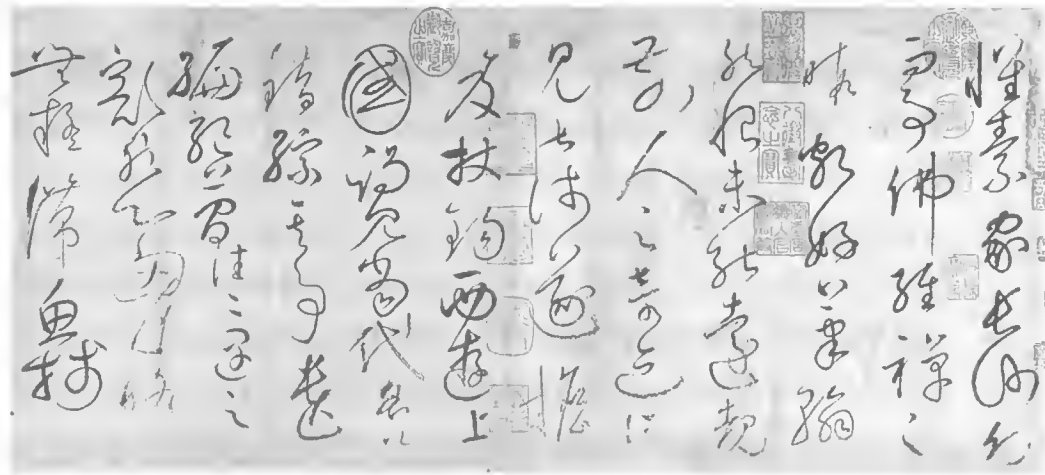 懷素家長沙幼而
事佛經禪之
暇頗好筆翰
然恨未能遠覩
前人之奇迹所
見甚淺遂擔
笈杖錫西遊上
國謁見當代名公
錯綜其事遺
編絕簡往々遇之
豁然心胸略
無疑滯魚牋